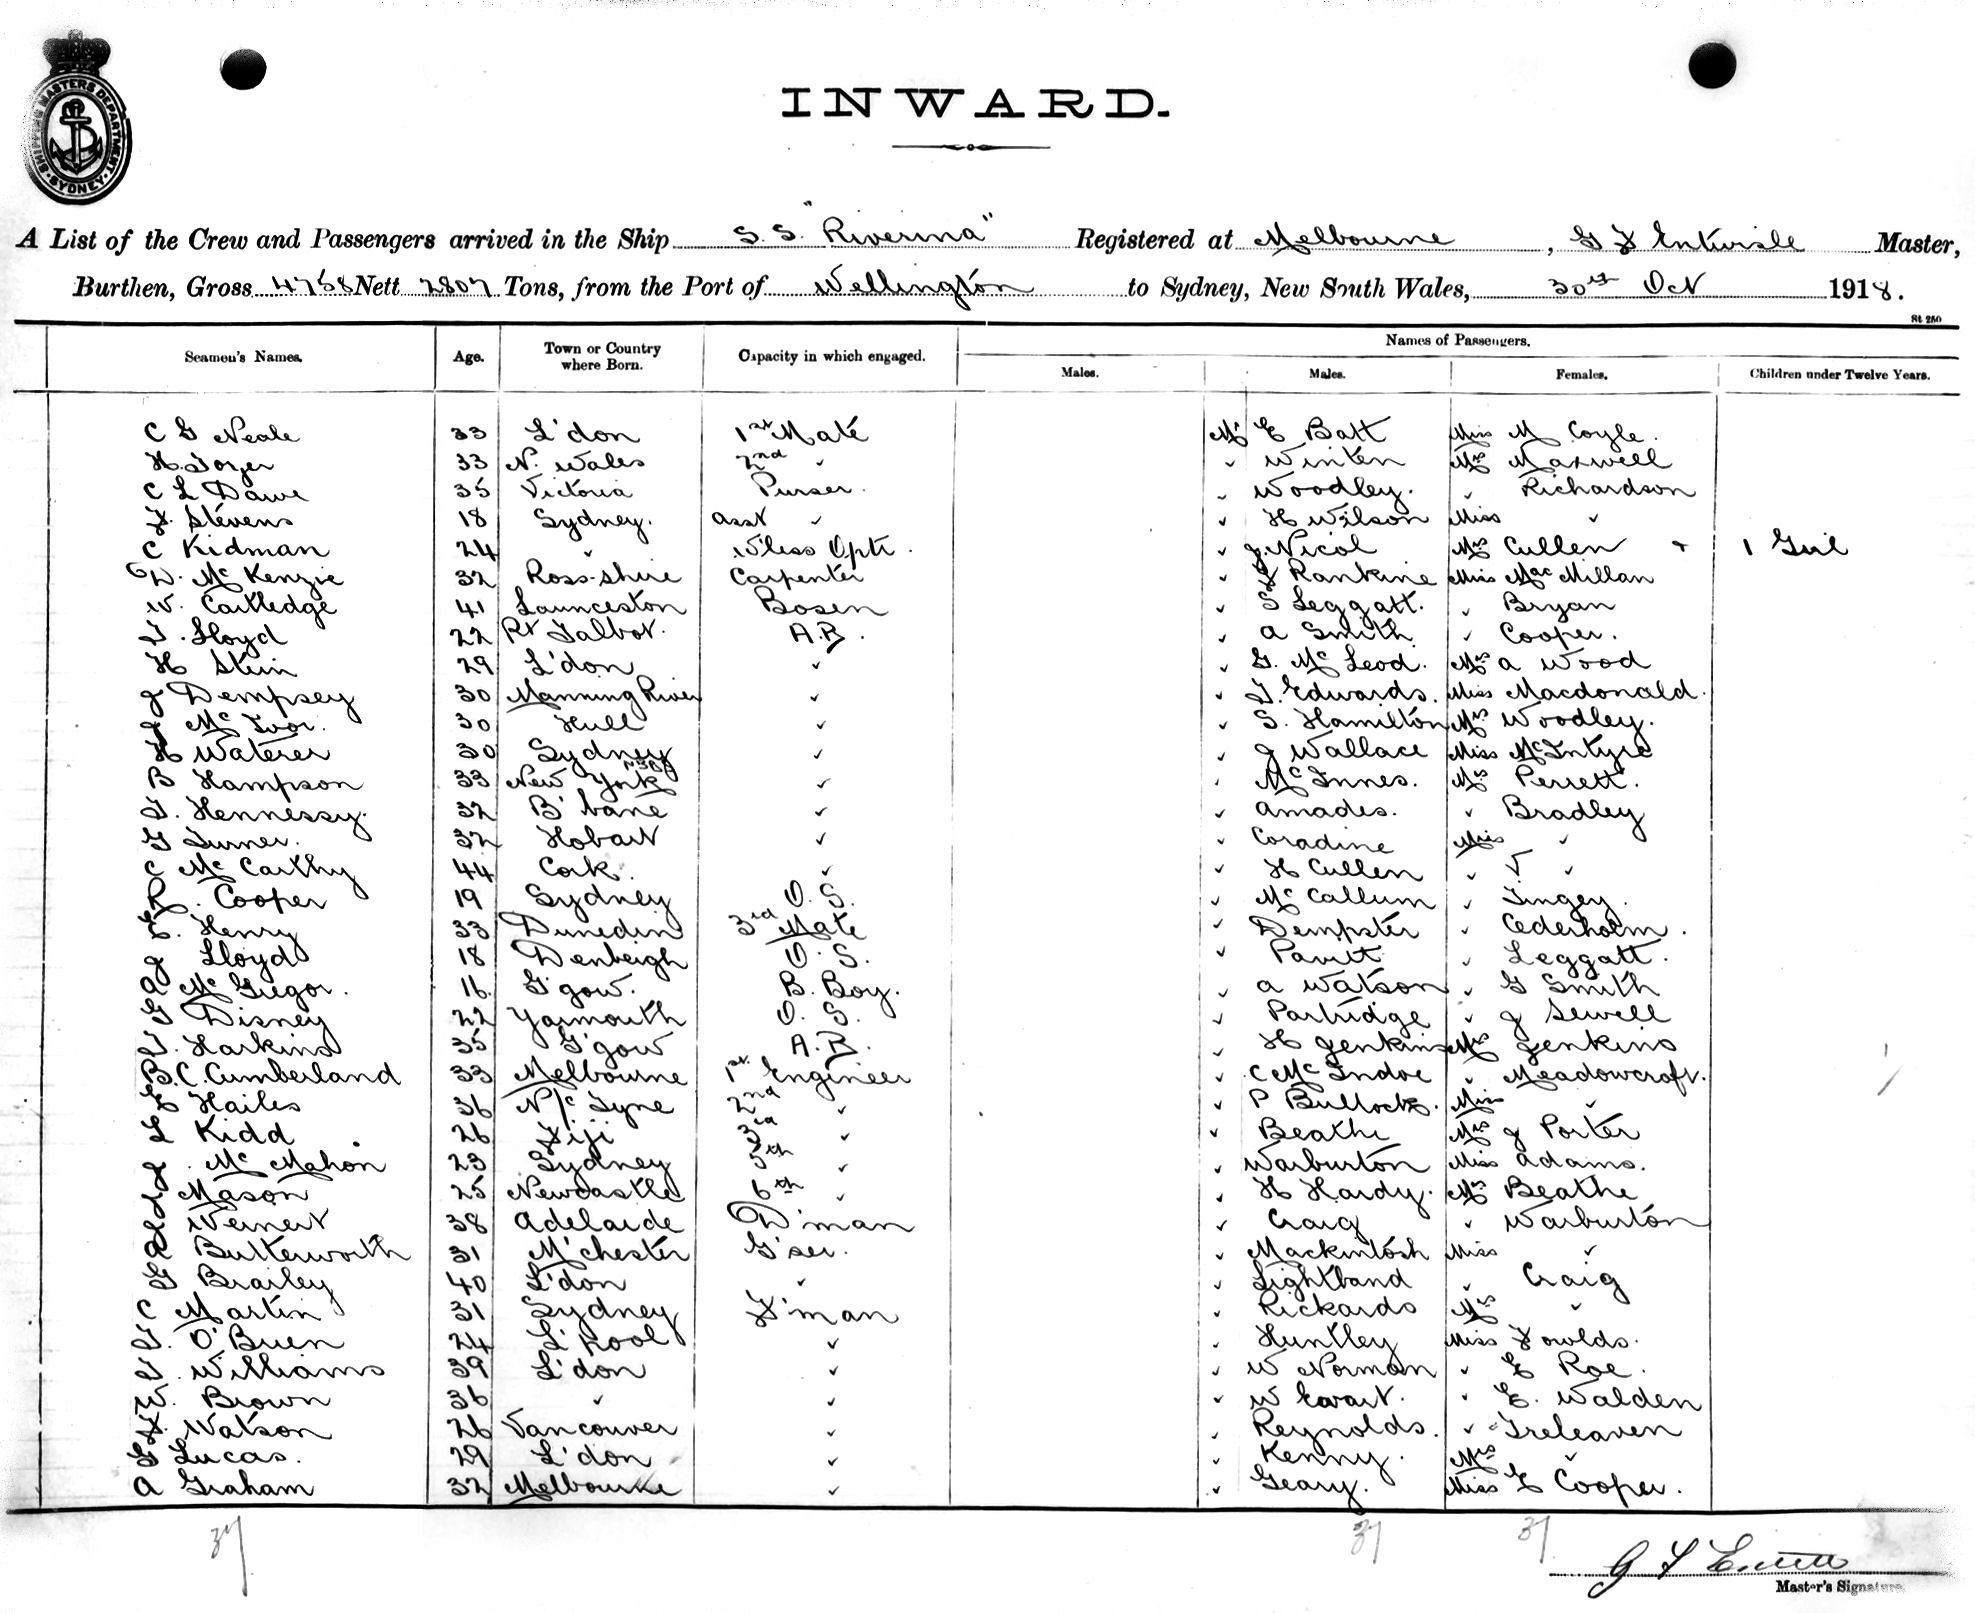 SHIPPING MASTERS DEPARTMENT. SYDNEY.
INWARD.
A List of the Crew and Passengers arrived in the Ship S.S. "Riverina" Registered at Melbourne, G F Entwisle Master,
Burthen, Gross 4758 Nett 2807 Tons, from the Port of Wellington to Sydney, New South Wales, 30th Oct 1918.
St 250
Seamen's Names. Age. Town or Country where Born. Capacity in which engaged. Names of Passengers.
Males. Males. Females. Children under Twelve Years.
C G Neale 33 L'don 1st Mate Mr E Batt Miss M Coyle.
H. Tozer 33 N. Wales 2nd " " Winten Mrs Maxwell
C L Dawe 35 Victoria Purser. " Woodley. " Richardson
F. Stevens 18 Sydney. Asst " " H Wilson Miss "
C Kidman 24 " W'less Optr. " J. Nicol Mrs Cullen + 1 Girl
D. McKenzie 32 Ross-shire Carpenter " F Rankine Miss MacMillan
W. Cartledge 41 Launceston Bosen " S Leggatt. " Bryan
T. Lloyd 22 Pt Talbot. A.B. " A Smith " Cooper.
H Stein 29 L'don " " G. McLeod. Mrs A Wood
J Dempsey 30 Manning River " " T. Edwards. Miss Macdonald.
J McIvor. 30 Hull " " S. Hamilton Mrs Woodley.
H Waterer 30 Sydney " " J Wallace Miss McIntyre
B Hampson 33 New York " " McInnes. Mrs Perrett.
T. Hennessy. 32 B'bane " " Amades. " Bradley
G Turner. 32 Hobart " " Coradine Miss "
C McCarthy 44 Cork. " " H Cullen " T "
R. Cooper 19 Sydney O.S. " McCallum " Tingey.
E. Henry 33 Dunedin 3rd Mate " Dempster " Cederholm.
J Lloyd 18 Denbeigh O.S. " Pavitt " Leggatt.
A McGregor. 16 G'gow. B. Boy. " A Watson " G Smith
G Disney 22 Yarmouth O.S. " Partridge " J Sewell
T. Harkins 35 G'gow A.B. " H Jenkins Mrs Jenkins
B.C. Cumberland 33 Melbourne 1st Engineer " C McIndoe " Meadowcroft.
E Hailes 36 N/c Tyne 2nd " " P Bullock. Miss "
L Kidd 26 Fiji 3rd " " Beathe Mrs J Porter
J. McMahon 23 Sydney 5th " " Warburton Miss Adams.
J Mason 25 Newcastle 6th " " H Hardy. Mrs Beathe
Wernert 38 Adelaide D'man " Craig " Warburton
Butterworth 31 M'chester G'ser. " Mackintosh Miss "
G Brailey 40 L'don " " Lightband " Craig
C Martin 31 Sydney F'man " Rickards Mrs "
T. O'Brien 24 L'pool " " Huntley Miss Fowlds.
T. Williams 39 L'don " " W Norman " E Roe.
W. Brown 36 " " " W Ewart. " E. Walden
F. Watson 26 Vancouver " " Reynolds. " Treleaven
G Lucas. 29 L'don " " Kenny. Mrs "
A Graham 32 Melbourne " " Geary. Miss E Cooper.
37 37 37
Master's Signature.